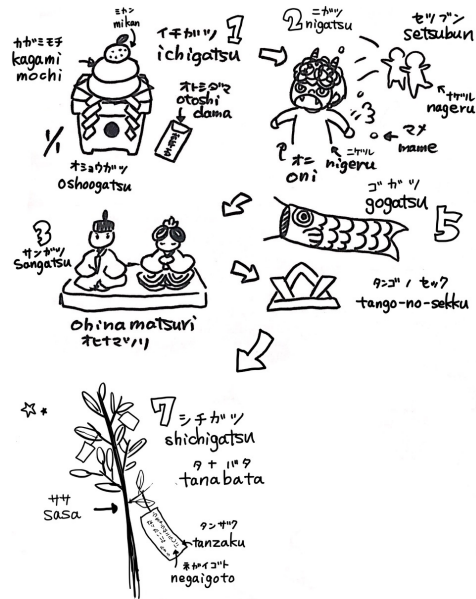 ミカン
mikan
カガミモチ
kagami
mochi
イチガツ 1
ichigatsu
オトシダマ
otoshi
dama
1/1
オショウガツ
oshoogatsu
2 ニガツ
nigatsu
セツブン
setsubun
ナゲル
nageru
マメ
mame
オニ
oni
ニゲル
nigeru
3
サンガツ
sangatsu
ohinamatsuri
ゴガツ
gogatsu
5
タンゴノセック
tango-no-sekku
7 シチガツ
shichigatsu
タナバタ
tanabata
ササ
sasa
タンザク
tanzaku
ネガイゴト
negaigoto